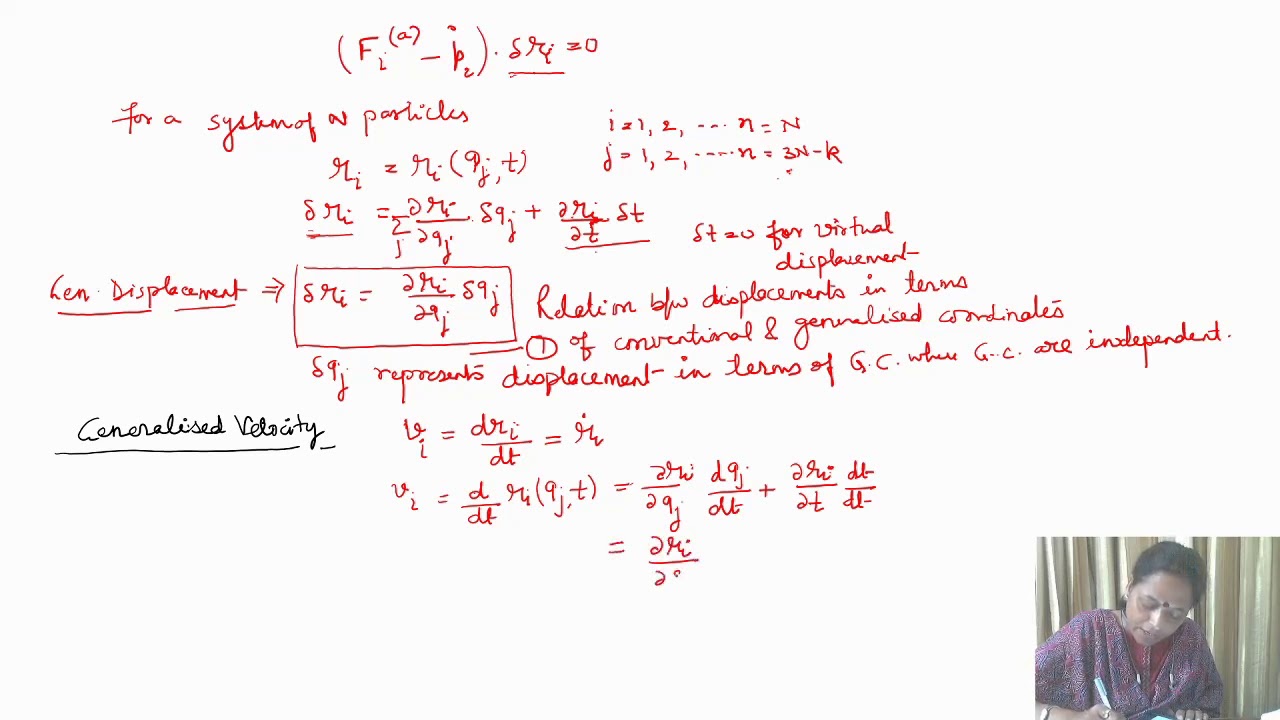 (F_i^(a) - ṗ_i) · δr_i = 0
for a system of N particles
i = 1, 2, ---- n = N
j = 1, 2, ----- n = 3N - k
r_i = r_i (q_j, t)
δr_i = Σ_j ∂r_i/∂q_j . δq_j + ∂r_i/∂t δt
δt = 0 for virtual
displacement
Gen. Displacement ⇒ δr_i = ∂r_i/∂q_j δq_j
Relation b/w displacements in terms
① of conventional & generalised coordinates
δq_j represents displacement in terms of G.C. where G.C. are independent.
Generalised Velocity
v_i = dr_i/dt = ṙ_i
v_i = d/dt r_i (q_j, t) = ∂r_i/∂q_j dq_j/dt + ∂r_i/∂t dt/dt
= ∂r_i/∂